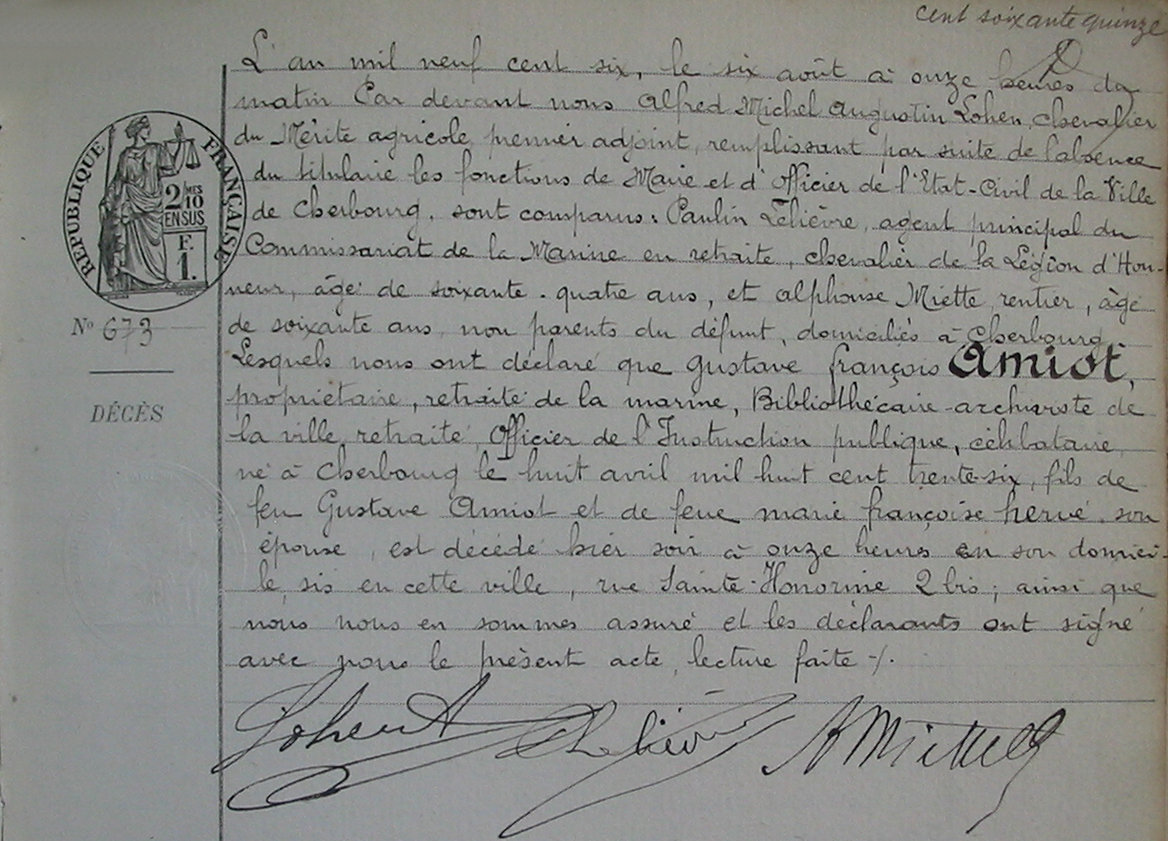 cent soixante quinze
L'an mil neuf cent six, le six août à onze heures du
matin Par devant nous Alfred Michel Augustin Lohen, chevalier
du Mérite agricole, premier adjoint, remplissant par suite de l'absence
du titulaire les fonctions de Maire et d'Officier de l'Etat-Civil de la Ville
de Cherbourg, sont comparus: Paulin Lelièvre, agent principal du
Commissariat de la Marine en retraite, chevalier de la Légion d'Hon-
neur, âgé de soixante-quatre ans, et Alphonse Miette, rentier, âgé
de soixante ans, non parents du défunt, domiciliés à Cherbourg
Lesquels nous ont déclaré que Gustave françois Amiot,
propriétaire, retraité de la marine, Bibliothécaire-archiviste de
la ville, retraité, Officier de l'Instruction publique, célibataire,
né à Cherbourg le huit avril mil huit cent trente-six, fils de
feu Gustave Amiot et de feue marie françoise hervé, son
épouse, est décédé hier soir à onze heures en son domici-
le, sis en cette ville, rue Sainte-Honorine 2 bis; ainsi que
nous nous en sommes assuré et les déclarants ont signé
avec nous le présent acte, lecture faite ./.
RÉPUBLIQUE FRANÇAISE
2/10 MES
EN SUS
F.
1.
No 673
DÉCÈS
Lohen A
Lelièvre
A Miette